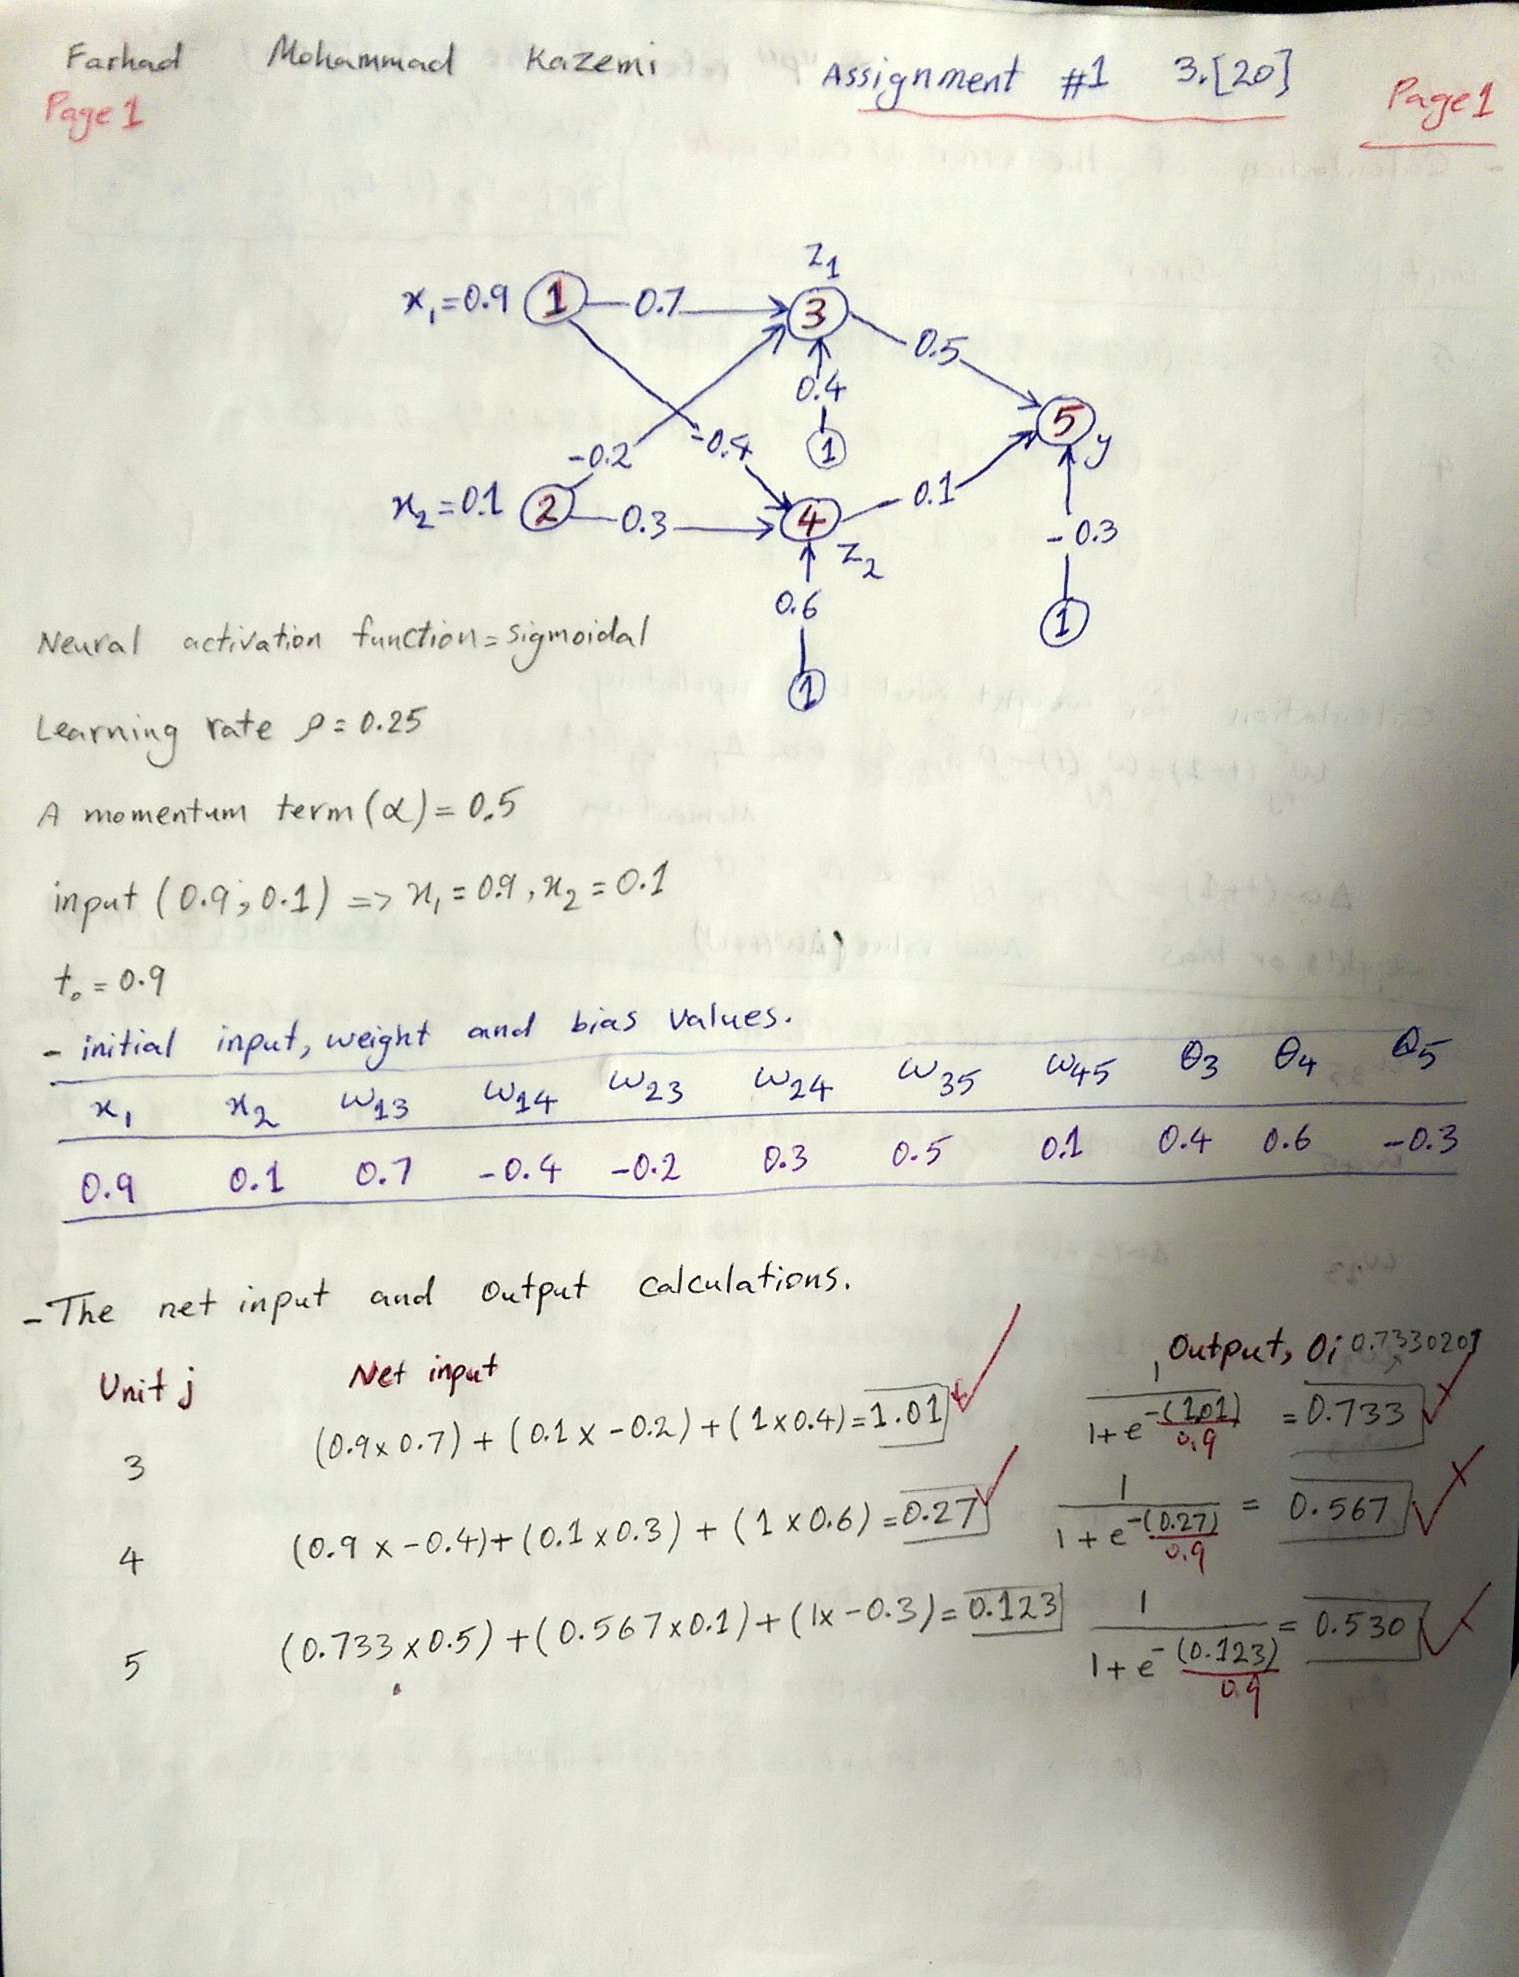 Farhad Mohammad Kazemi Assignment #1 3.[20]
Page 1 Page 1
Z1
x1=0.9 1 0.7 3 0.5
0.4
-0.2 -0.4 1 5 y
x2=0.1 2 0.3 4 0.1
Z2 -0.3
0.6 1
1
Neural activation function=sigmoidal
Learning rate ρ=0.25
A momentum term(α)=0.5
input (0.9, 0.1) => x1=0.9, x2=0.1
t0=0.9
- initial input, weight and bias values.
x1 x2 ω13 ω14 ω23 ω24 ω35 ω45 θ3 θ4 θ5
0.9 0.1 0.7 -0.4 -0.2 0.3 0.5 0.1 0.4 0.6 -0.3
-The net input and output calculations.
Unit j Net input Output, Oj 0.7330201
3 (0.9x0.7)+(0.1x-0.2)+(1x0.4)=1.01 1/(1+e^-(1.01)/0.9) =0.733
4 (0.9x-0.4)+(0.1x0.3)+(1x0.6)=0.27 1/(1+e^-(0.27)/0.9) = 0.567
5 (0.733x0.5)+(0.567x0.1)+(1x-0.3)=0.123 1/(1+e^-(0.123)/0.9) = 0.530